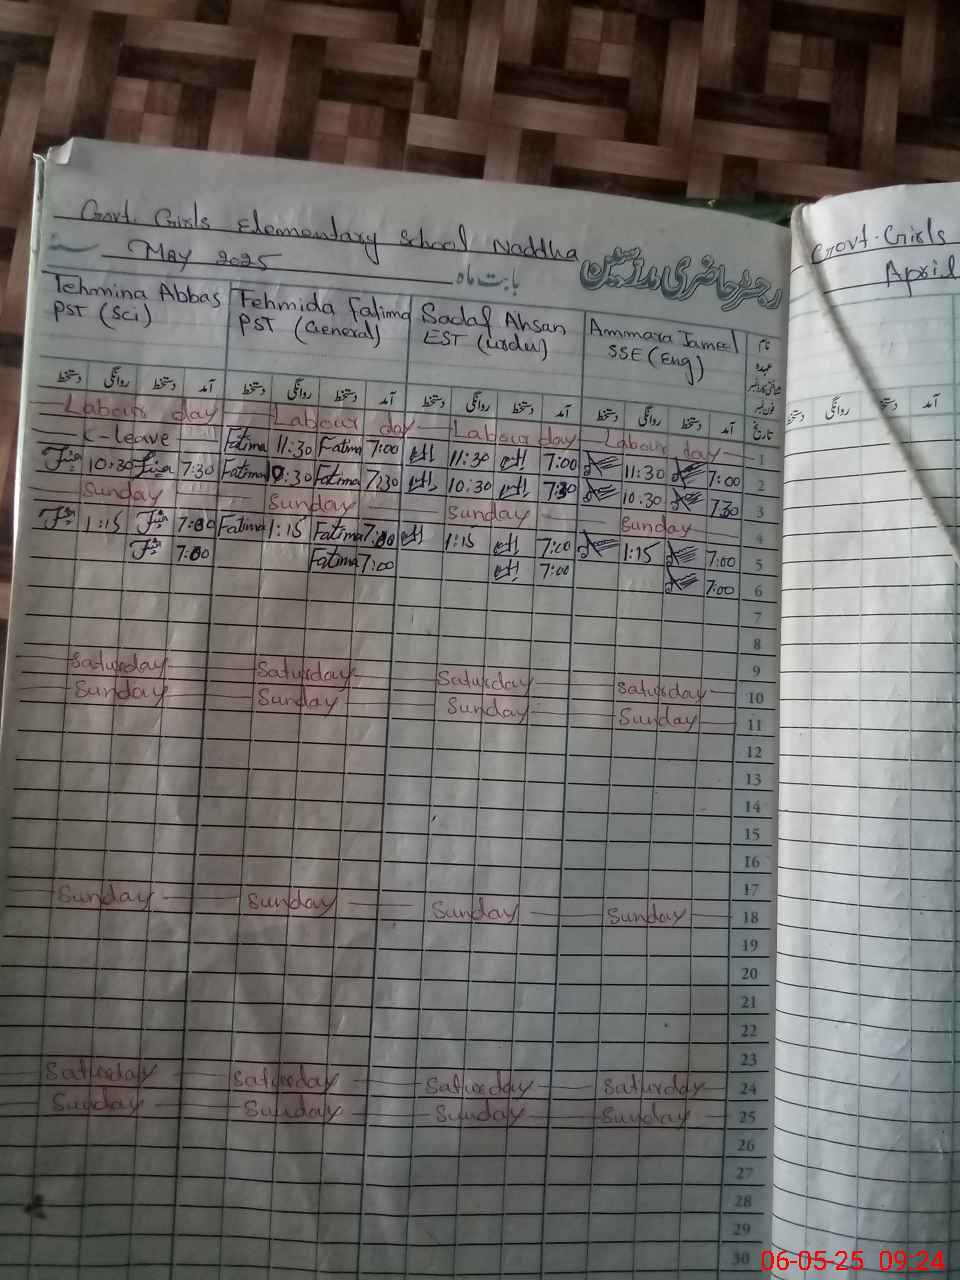 Govt. Girls Elementary School Naddha
May 2025 سنہ
بابت ماہ
رجسٹر حاضری مدرسین
Tehmina Abbas
PST (Sci)
Fehmida Fatima
PST (General)
Sadaf Ahsan
EST (Urdu)
Ammara Jameel
SSE (Eng)
نام
عہدہ
فون نمبر
تاریخ
دستخط روانگی دستخط آمد دستخط روانگی دستخط آمد دستخط روانگی دستخط آمد دستخط روانگی دستخط آمد
Labour day Labour day Labour day Labour day 1
C-leave Fatima 11:30 Fatima 7:00 11:30 7:00 11:30 7:00 2
10:30 7:30 Fatima 10:30 Fatima 7:30 10:30 7:30 10:30 7:30 3
Sunday Sunday Sunday Sunday 4
1:15 7:00 Fatima 1:15 Fatima 7:00 1:15 7:00 1:15 7:00 5
7:00 Fatima 7:00 7:00 7:00 6
7
8
9
Saturday Saturday Saturday Saturday 10
Sunday Sunday Sunday Sunday 11
12
13
14
15
16
17
Sunday Sunday Sunday Sunday 18
19
20
21
22
23
Saturday Saturday Saturday Saturday 24
Sunday Sunday Sunday Sunday 25
26
27
28
29
30
Govt. Girls
April
دستخط روانگی دستخط آمد
06-05-25 09:24